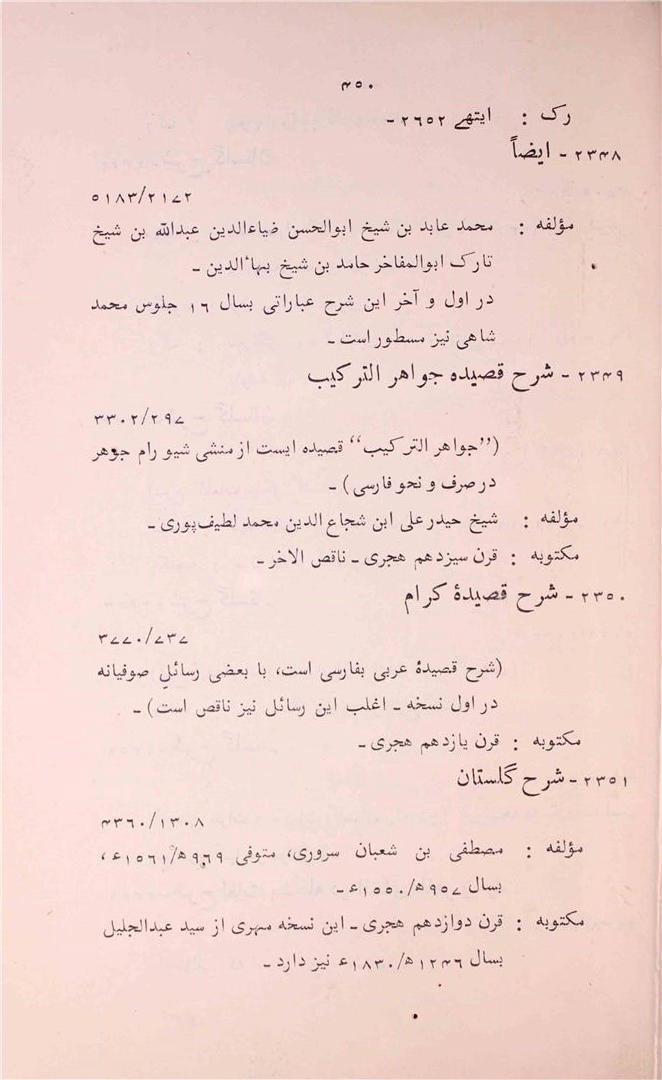 ۴۵۰
رک : ایتھے ۲۶۵۲ -
۲۳۴۸ - ایضاً
۵۱۸۳/۲۱۷۲
مؤلفه : محمد عابد بن شیخ ابوالحسن ضیاءالدین عبدالله بن شیخ
تارک ابوالمفاخر حامد بن شیخ بهاءالدین -
در اول و آخر این شرح عباراتی بسال ۱۶ جلوس محمد
شاهی نیز مسطور است -
۲۳۴۹ - شرح قصیده جواهر الترکیب
۳۳۰۲/۲۹۷
(”جواهر الترکیب“ قصیده ایست از منشی شیو رام جوهر
در صرف و نحو فارسی) -
مؤلفه : شیخ حیدر علی ابن شجاع الدین محمد لطیف‌پوری -
مکتوبه : قرن سیزدهم هجری - ناقص الاخر -
۲۳۵۰ - شرح قصیدهٔ کرام
۳۷۷۰/۷۳۷
(شرح قصیدهٔ عربی بفارسی است، با بعضی رسائلِ صوفیانه
در اول نسخه - اغلب این رسائل نیز ناقص است) -
مکتوبه : قرن یازدهم هجری -
۲۳۵۱ - شرح گلستان
۴۳۶۰/۱۳۰۸
مؤلفه : مصطفی بن شعبان سروری، متوفی ۹۶۹ھ/۱۵۶۱ء،
بسال ۹۵۷ھ/۱۵۵۰ء -
مکتوبه : قرن دوازدهم هجری - این نسخه مهری از سید عبدالجلیل
بسال ۱۲۴۶ھ/۱۸۳۰ء نیز دارد -